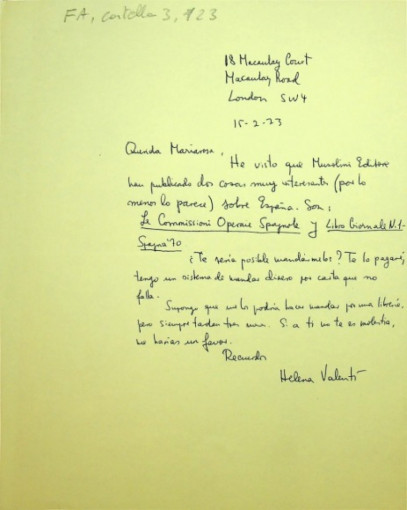 FA, cartella 3, 123
18 Macaulay Court
Macaulay Road
London SW4
15-2-73
Querida Mariarosa,
He visto que Musolini Editore
han publicado dos cosas muy interesants (por lo
menos lo parece) sobre España. Son:
Le Commissioni Operaie Spagnole y Libro Giornale N.1-
Spagna '70
¿Te sería posible mandármelos? Te lo pagaré,
tengo un sistema de mandar dinero por carta que no
falla.
Supongo que me los podría hacer mandar por una librería,
pero siempre tardan tres meses. Si a ti no te es molestia,
me harías un favor.
Recuerdos
Helena Valentí